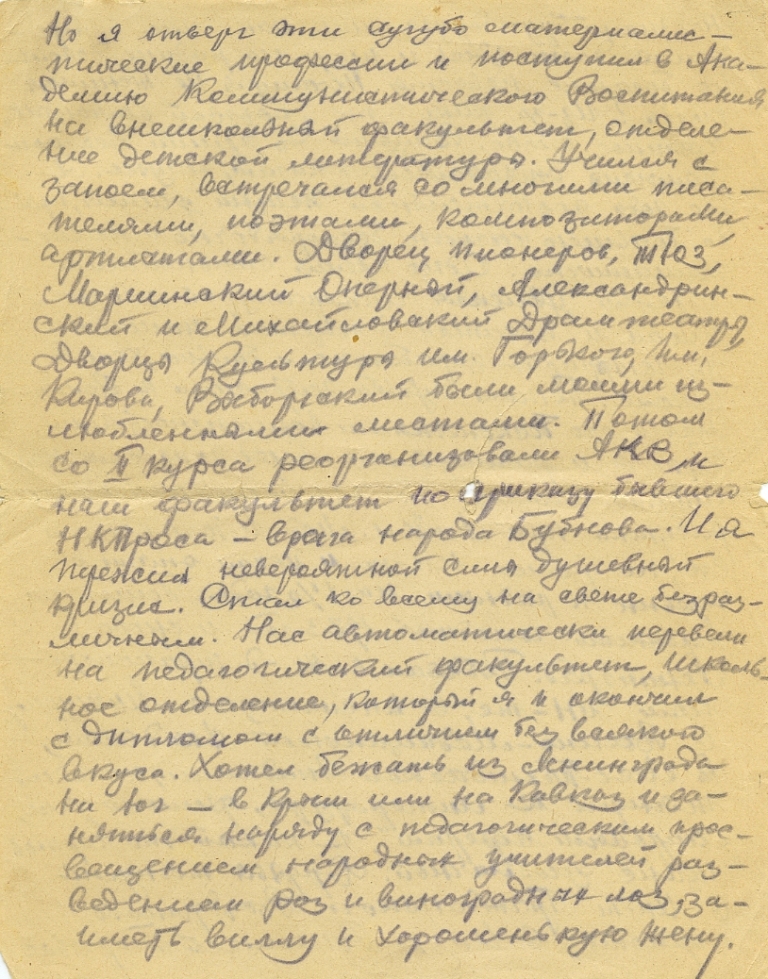 Но я отверг эти сугубо материалис-
тические профессии и поступил в Ака-
демию Коммунистического Воспитания
на внешкольный факультет, отделе-
ние детской литературы. Учился с
запоем, встречался со многими писа-
телями, поэтами, композиторами,
артистами. Дворец пионеров, ТЮЗ,
Мариинский Оперный, Александрин-
ский и Михайловский Драмтеатры,
Дворцы Культуры им. Горького, им.
Кирова, Выборгский были моими из-
любленными местами. Потом
со II курса реорганизовали АКВ и
наш факультет по приказу бывшего
НКПроса – врага народа Бубнова. И я
пережил невероятной силы душевный
кризис. Стал ко всему на свете безраз-
личным. Нас автоматически перевели
на педагогический факультет, школь-
ное отделение, который я и окончил
с дипломом с отличием без всякого
вкуса. Хотел бежать из Ленинграда
на юг – в Крым или на Кавказ и за-
няться наряду с педагогическим прос-
вещением народных учителей раз-
ведением роз и виноградных лоз, за-
иметь виллу и хорошенькую жену.